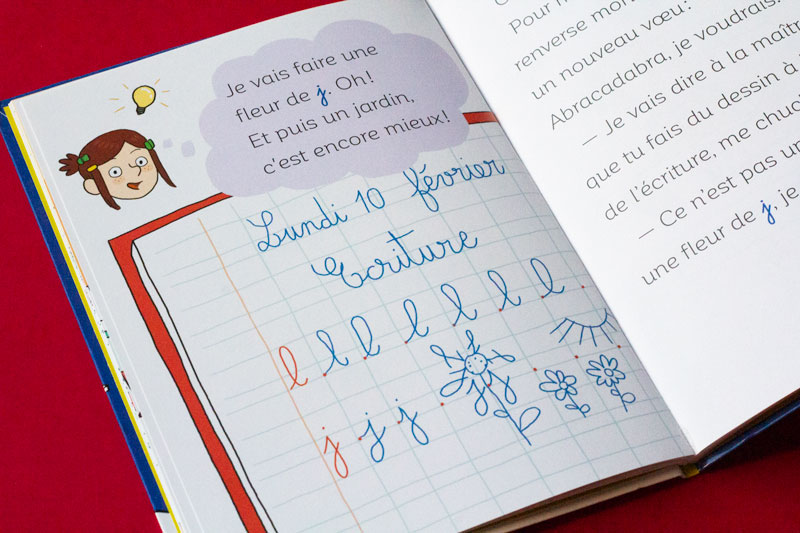 Je vais faire une
fleur de j. Oh!
Et puis un jardin,
c'est encore mieux!
Lundi 10 février
Ecriture
l l l l l l l
j j j
Pour
renverse mon
un nouveau vœu:
Abracadabra, je voudrais
— Je vais dire à la maît
que tu fais du dessin à
de l'écriture, me chuc
— Ce n'est pas un
une fleur de j, je